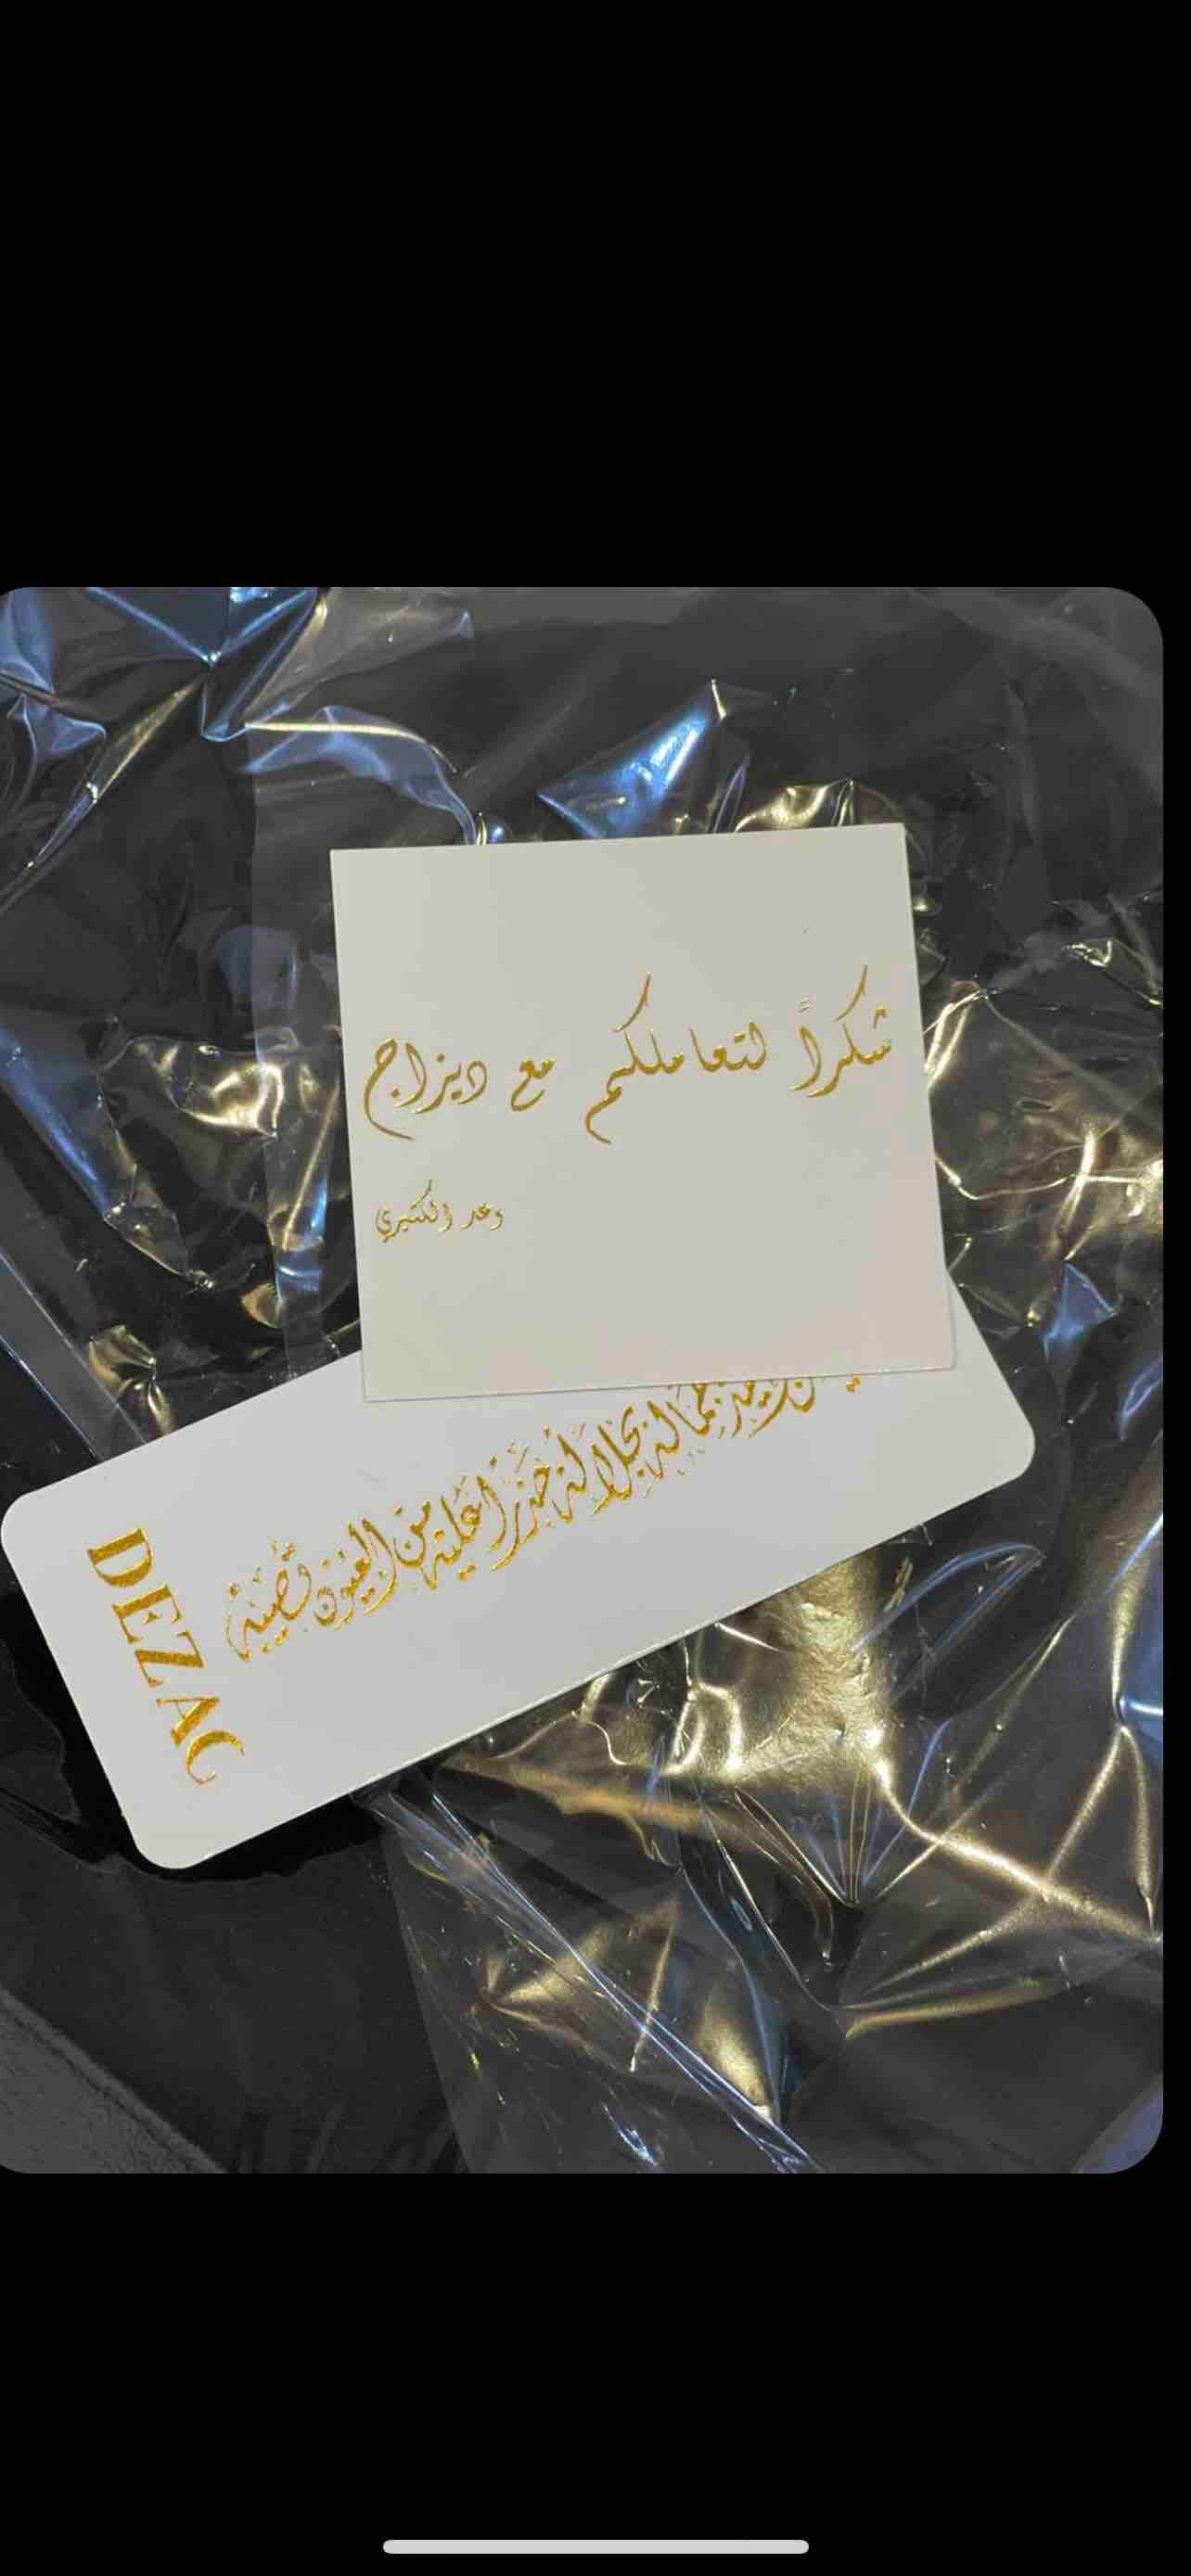 شكراً لتعاملكم مع ديزاج
وعد الكثيري
بجماله بجلاله حذراً عليه من العيون تصيبه
DEZAC